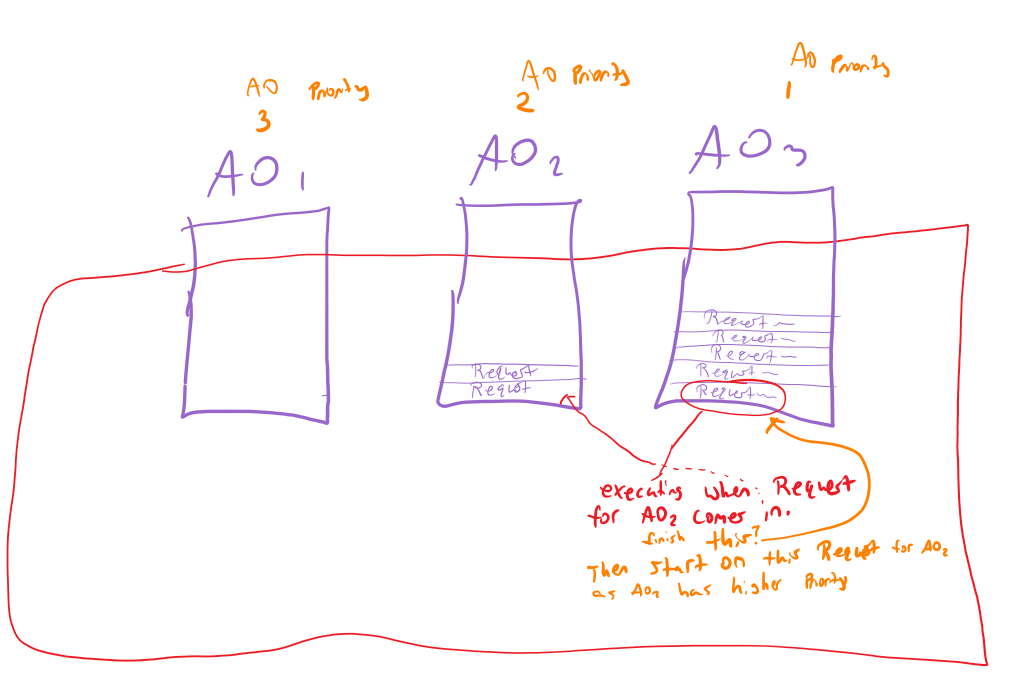 AO Priority
3
AO Priority
2
AO Priority
1
AO1
AO2
AO3
Request
Request
Request
Request
Request
Request
Request
executing when Request
for AO2 comes in.
finish this?
Then start on this Request for AO2
as AO2 has higher Priority